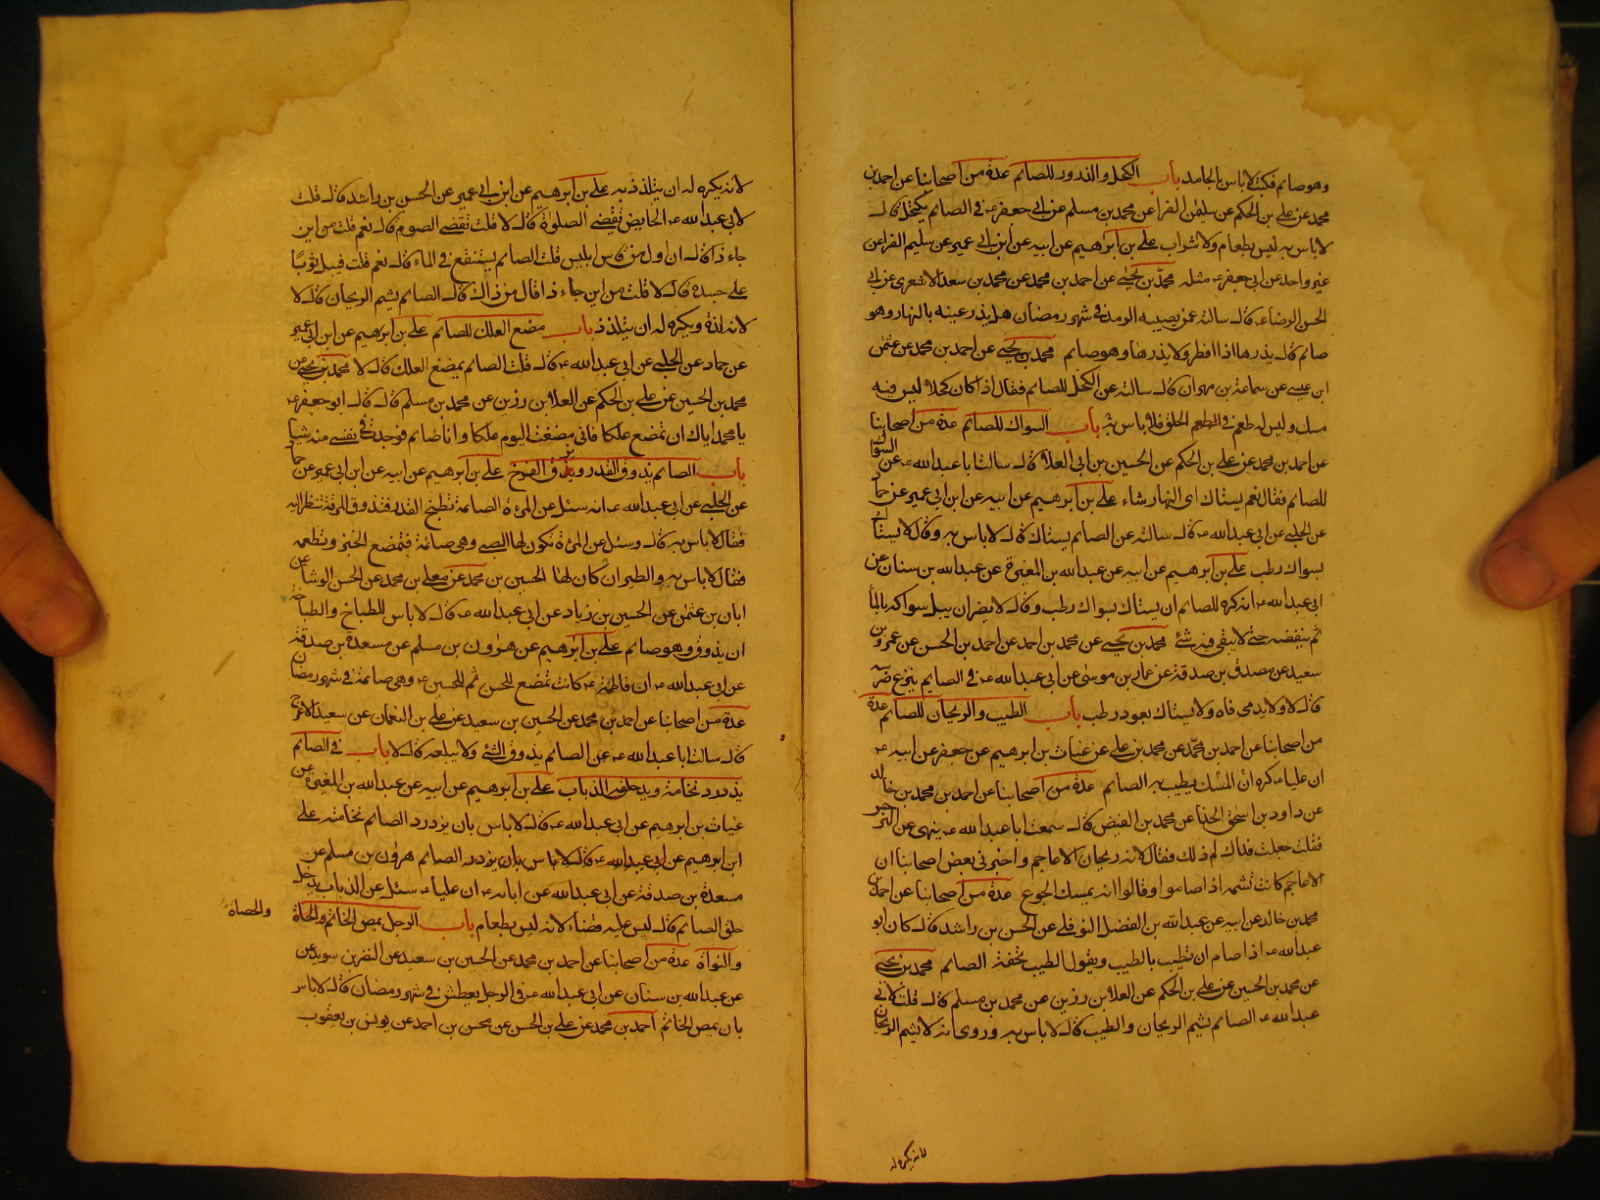 وهو صائم فكتب لا باس بالجامد باب الكحل والذرور للصائم عدة من اصحابنا عن احمد بن
محمد عن علي بن الحكم عن سليمن الفرا عن محمد بن مسلم عن ابي جعفر عه في الصائم يكتحل قال
لا باس به ليس بطعام ولا شراب علي بن ابرهيم عن ابيه عن ابن ابي عمير عن سليم الفرا عن
غير واحد عن ابي جعفر عه مثله محمد بن يحيى عن احمد بن محمد عن محمد بن سعد الاشعري عن ابي
الحسن الرضا عه قال سالته عمن يصيبه الرمد في شهر رمضان هل يذر عينه بالنهار وهو
صائم قال يذرها اذا افطر ولا يذرها وهو صائم محمد بن يحيى عن احمد بن محمد عن عثمن
ابن عيسى عن سماعة بن مهران قال سالته عن الكحل للصائم فقال اذا كان كحلا ليس فيه
مسك وليس له طعم في الحلق فلا باس به باب السواك للصائم عدة من اصحابنا
عن احمد بن محمد عن علي بن الحكم عن الحسين بن ابي العلا قال سالت ابا عبد الله عه عن السواك
للصائم فقال نعم يستاك اى النهار شاء علي بن ابرهيم عن ابيه عن ابن ابي عمير عن حماد
عن الحلبي عن ابي عبد الله عه قال سالته عن الصائم يستاك قال لا باس به وقال لا يستاك
بسواك رطب علي بن ابرهيم عن ابيه عن عبد الله بن المغيرة عن عبد الله بن سنان عن
ابي عبد الله عه انه كره للصائم ان يستاك بسواك رطب وقال لا يضر ان يبل سواكه بالماء
ثم ينفضه حتى لا يبقى فيه شئ محمد بن يحيى عن محمد بن احمد عن احمد بن الحسن عن عمرو بن
سعيد عن مصدق بن صدقة عن عمار بن موسى عن ابي عبد الله عه في الصائم ينزع ضرسه
قال لا ولا يدمى فاه ولا يستاك بعود رطب باب الطيب والريحان للصائم عدة
من اصحابنا عن احمد بن محمد عن محمد بن علي عن غياث بن ابرهيم عن جعفر عن ابيه عه
ان عليا عه كره ان المسك يطيب به الصائم عدة من اصحابنا عن احمد بن محمد بن خالد
عن داود بن اسحق الحذا عن محمد بن الفيض قال سمعت ابا عبد الله عه ينهى عن النرجس
فقلت جعلت فداك لم ذلك فقال لانه ريحان الاعاجم واخبرنى بعض اصحابنا ان
الاعاجم كانت تشمه اذا صاموا وقالوا انه يمسك الجوع عدة من اصحابنا عن احمد بن
محمد بن خالد عن ابيه عن عبد الله بن الفضل النوفلي عن الحسن بن راشد قال كان ابو
عبد الله عه اذا صام ان تطيب بالطيب ويقول الطيب تحفة الصائم محمد بن يحيى
عن محمد بن الحسين عن علي بن الحكم عن العلا بن رزين عن محمد بن مسلم قال قلت لابي
عبد الله عه الصائم يشم الريحان والطيب قال لا باس به وروى انه لا يشم الريحان
لانه يكره له
لانه يكره له ان يتلذذ به علي بن ابرهيم عن ابن ابي عمير عن الحسن بن راشد قال قلت
لابي عبد الله عه الحايض تقضى الصلوة قال لا قلت تقضى الصوم قال نعم قلت من اين
جاء ذا قال ان اول من قاس ابليس قلت الصائم يستنقع في الماء قال نعم قلت فيبل ثوبا
على جسده قال لا قلت من اين جاء ذا قال من ذاك قال الصائم يشم الريحان قال لا
لانه لذة ويكره له ان يتلذذ باب مضغ العلك للصائم علي بن ابرهيم عن ابن ابي عمير
عن حماد عن الحلبي عن ابي عبد الله عه قال قلت الصائم يمضغ العلك قال لا محمد بن يحيى عن
محمد بن الحسين عن علي بن الحكم عن العلا بن رزين عن محمد بن مسلم قال قال ابو جعفر عه
يا محمد اياك ان تمضغ علكا فانى مضغت اليوم علكا وانا صائم فوجدت في نفسى منه شيئا
باب الصائم يذوق القدر ويزق الفرخ علي بن ابرهيم عن ابيه عن ابن ابي عمير عن حماد
عن الحلبي عن ابي عبد الله عه انه سئل عن المرءة الصائمة تطبخ القدر فتذوق المرقة تنظر اليه
فقال لا باس به قال وسئل عن المرءة تكون لها الصبى وهى صائمة فتمضغ الخبز وتطعمه
فقال لا باس به والطير ان كان لها الحسين بن محمد عن معلى بن محمد عن الحسن الوشا عن
ابان بن عثمن عن الحسين بن زياد عن ابي عبد الله عه قال لا باس للطباخ والطباخة
ان يذوق وهو صائم علي بن ابرهيم عن هرون بن مسلم عن مسعدة بن صدقة
عن ابي عبد الله عه ان فاطمة عه كانت تمضغ للحسن ثم للحسين عه وهى صائمة في شهر رمضان
عدة من اصحابنا عن احمد بن محمد عن الحسين بن سعيد عن علي بن النعمان عن سعيد الاعرج
قال سالت ابا عبد الله عه عن الصائم يذوق الشئ ولا يبلعه قال لا باب في الصائم
يزدرد نخامته ويدخل حلقه الذباب علي بن ابرهيم عن ابيه عن عبد الله بن المغيرة عن
غياث بن ابرهيم عن ابي عبد الله عه قال لا باس بان يزدرد الصائم نخامته علي
ابن ابرهيم عن ابي عبد الله عه قال لا باس بان يزدرد الصائم هرون بن مسلم عن
مسعدة بن صدقة عن ابي عبد الله عن ابائه عه ان عليا عه سئل عن الذباب يدخل
حلق الصائم قال ليس عليه قضاء لانه ليس بطعام باب الرجل يمص الخاتم والحصاة
والحصاة
والنواة عدة من اصحابنا عن احمد بن محمد عن الحسين بن سعيد عن النضر بن سويد عن
عن عبد الله بن سنان عن ابي عبد الله عه في الرجل يعطش في شهر رمضان قال لا باس
بان يمص الخاتم احمد بن محمد عن علي بن الحسن عن محسن بن احمد عن يونس بن يعقوب